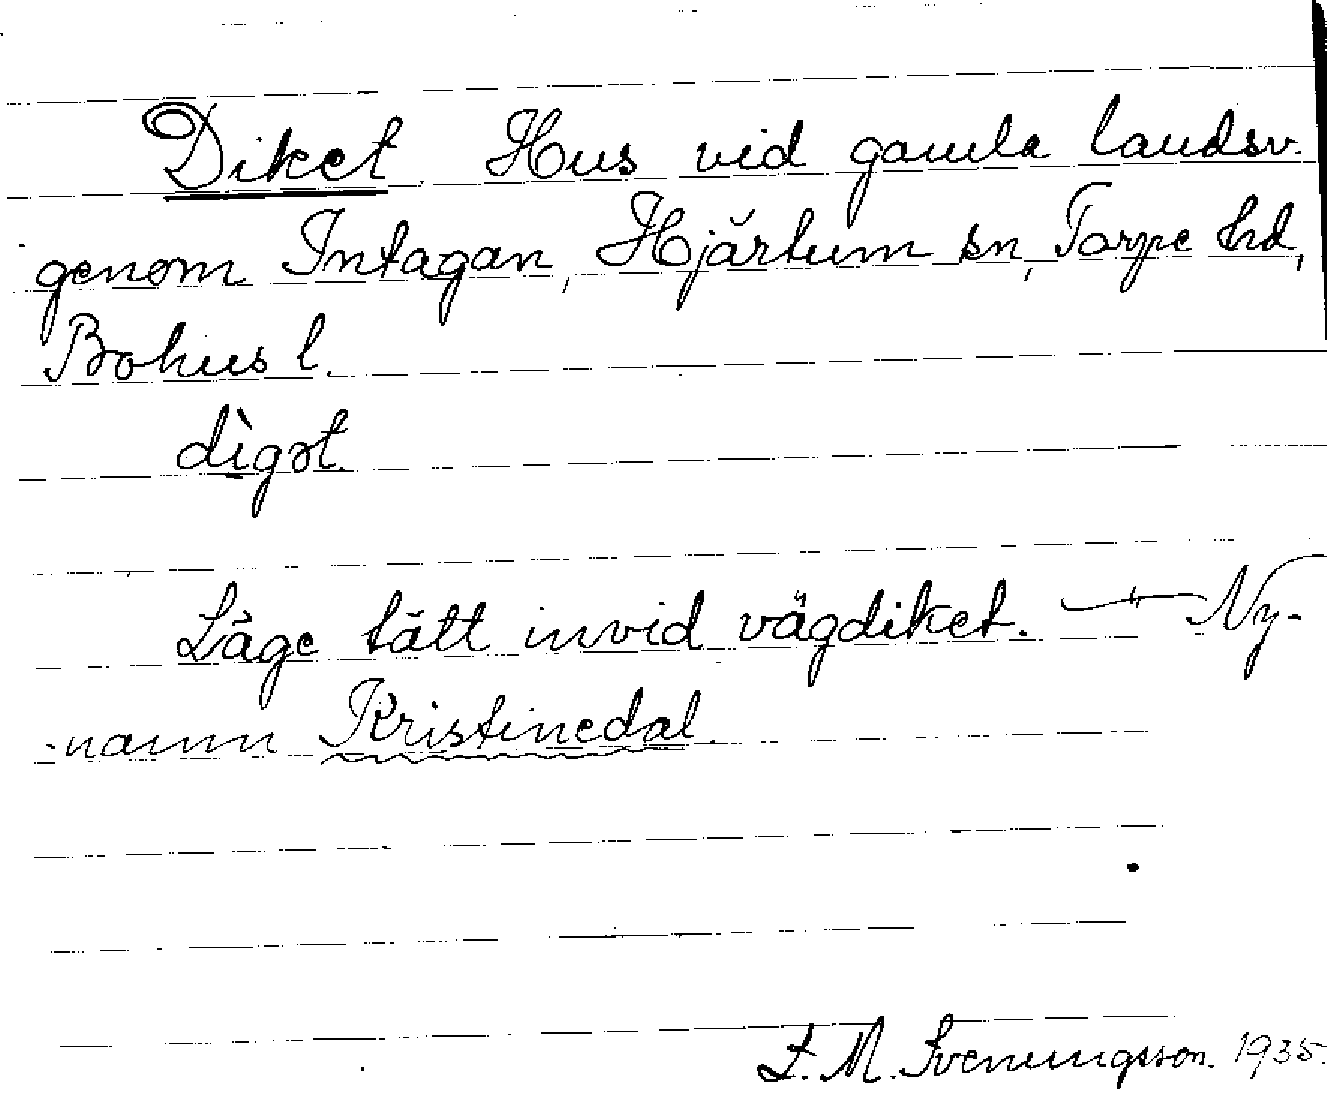 Diket Hus vid gamla landsv.
genom Intagan, Hjärtum sn, Torpe hd,
Bohus l.
dìgət
Läge tätt invid vägdiket. — " — Ny-
-namn Kristinedal.
L. M. Svenungsson. 1935.